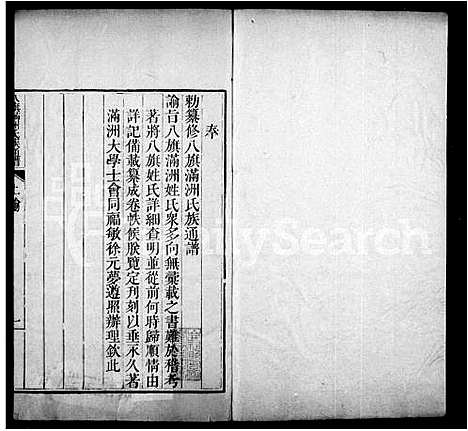 奉
勅纂修八旗滿洲氏族通譜
諭旨八旗滿洲姓氏衆多向無彙載之書難於稽考
著將八旗姓氏詳細查明並從前何時歸順情由
詳記備載纂成卷帙候朕覽定刋刻以垂永久著
滿洲大學士會同福敏徐元夢遵照辦理欽此
上諭
一
FamilySearch